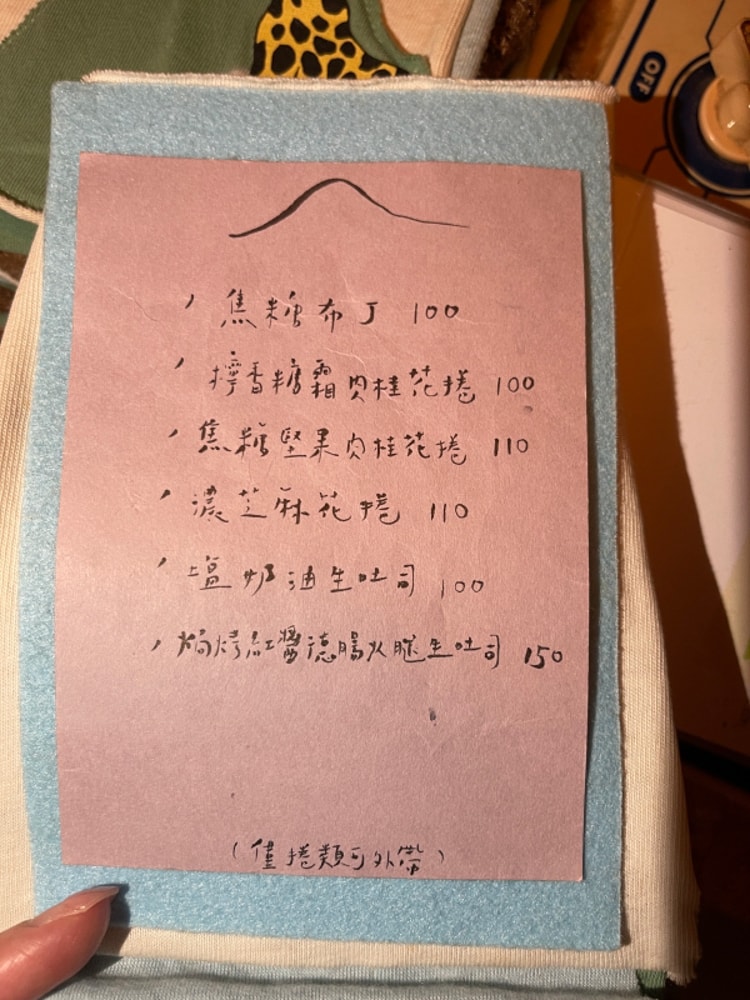 OFF
、焦糖布丁 100
、檸香糖霜肉桂花捲 100
、焦糖堅果肉桂花捲 110
、濃芝麻花捲 110
、塩奶油生吐司 100
、焗烤紅醬德腸火腿生吐司 150
(僅捲類可外帶)